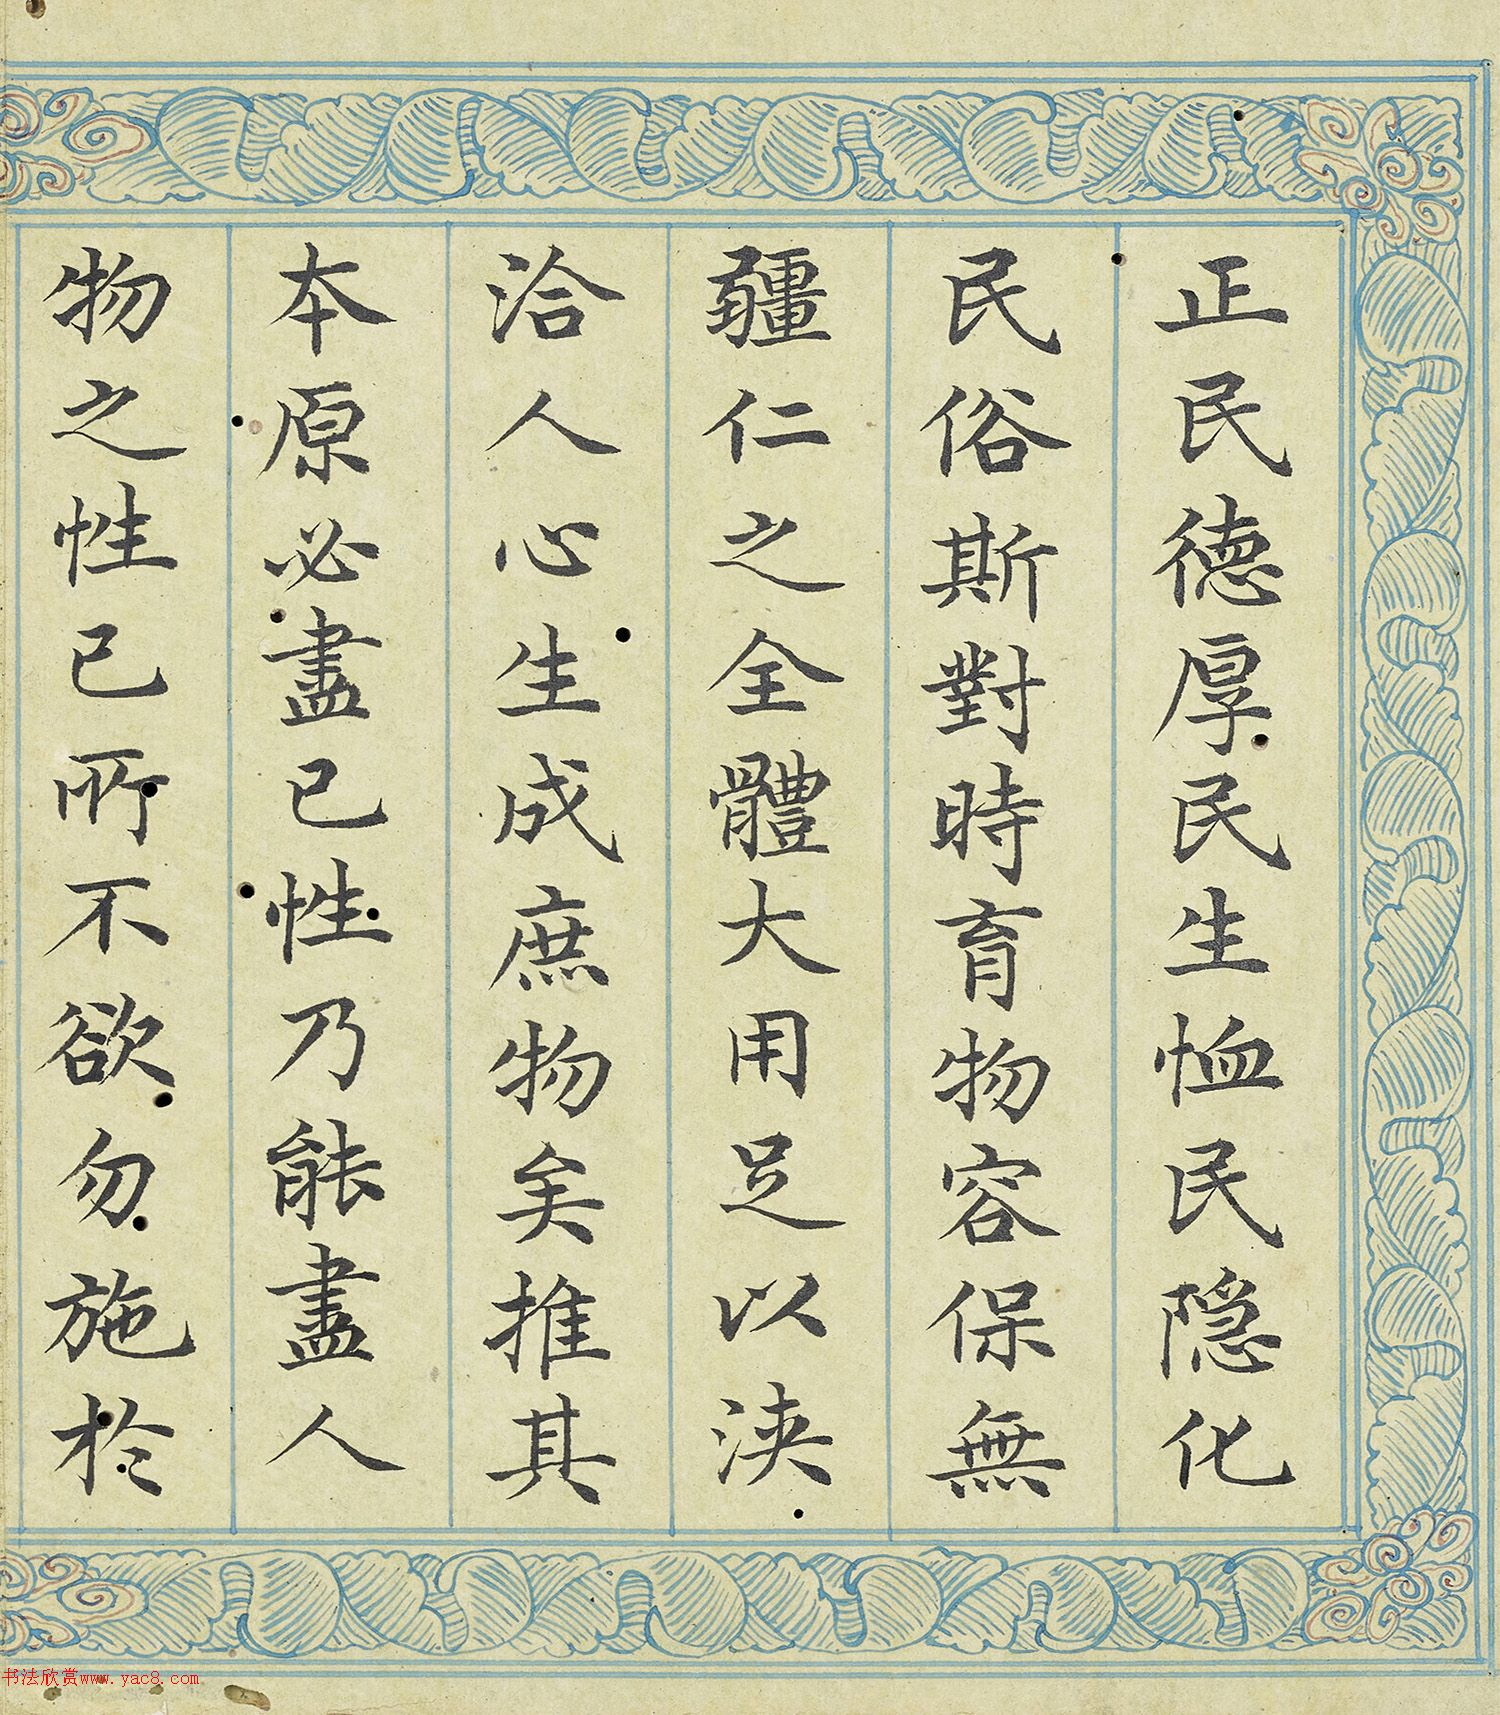 正民德厚民生恤民隱化
民俗斯對時育物容保無
疆仁之全體大用足以浹
洽人心生成庶物矣推其
本原必盡己性乃能盡人
物之性己所不欲勿施於
书法欣赏www.yac8.com